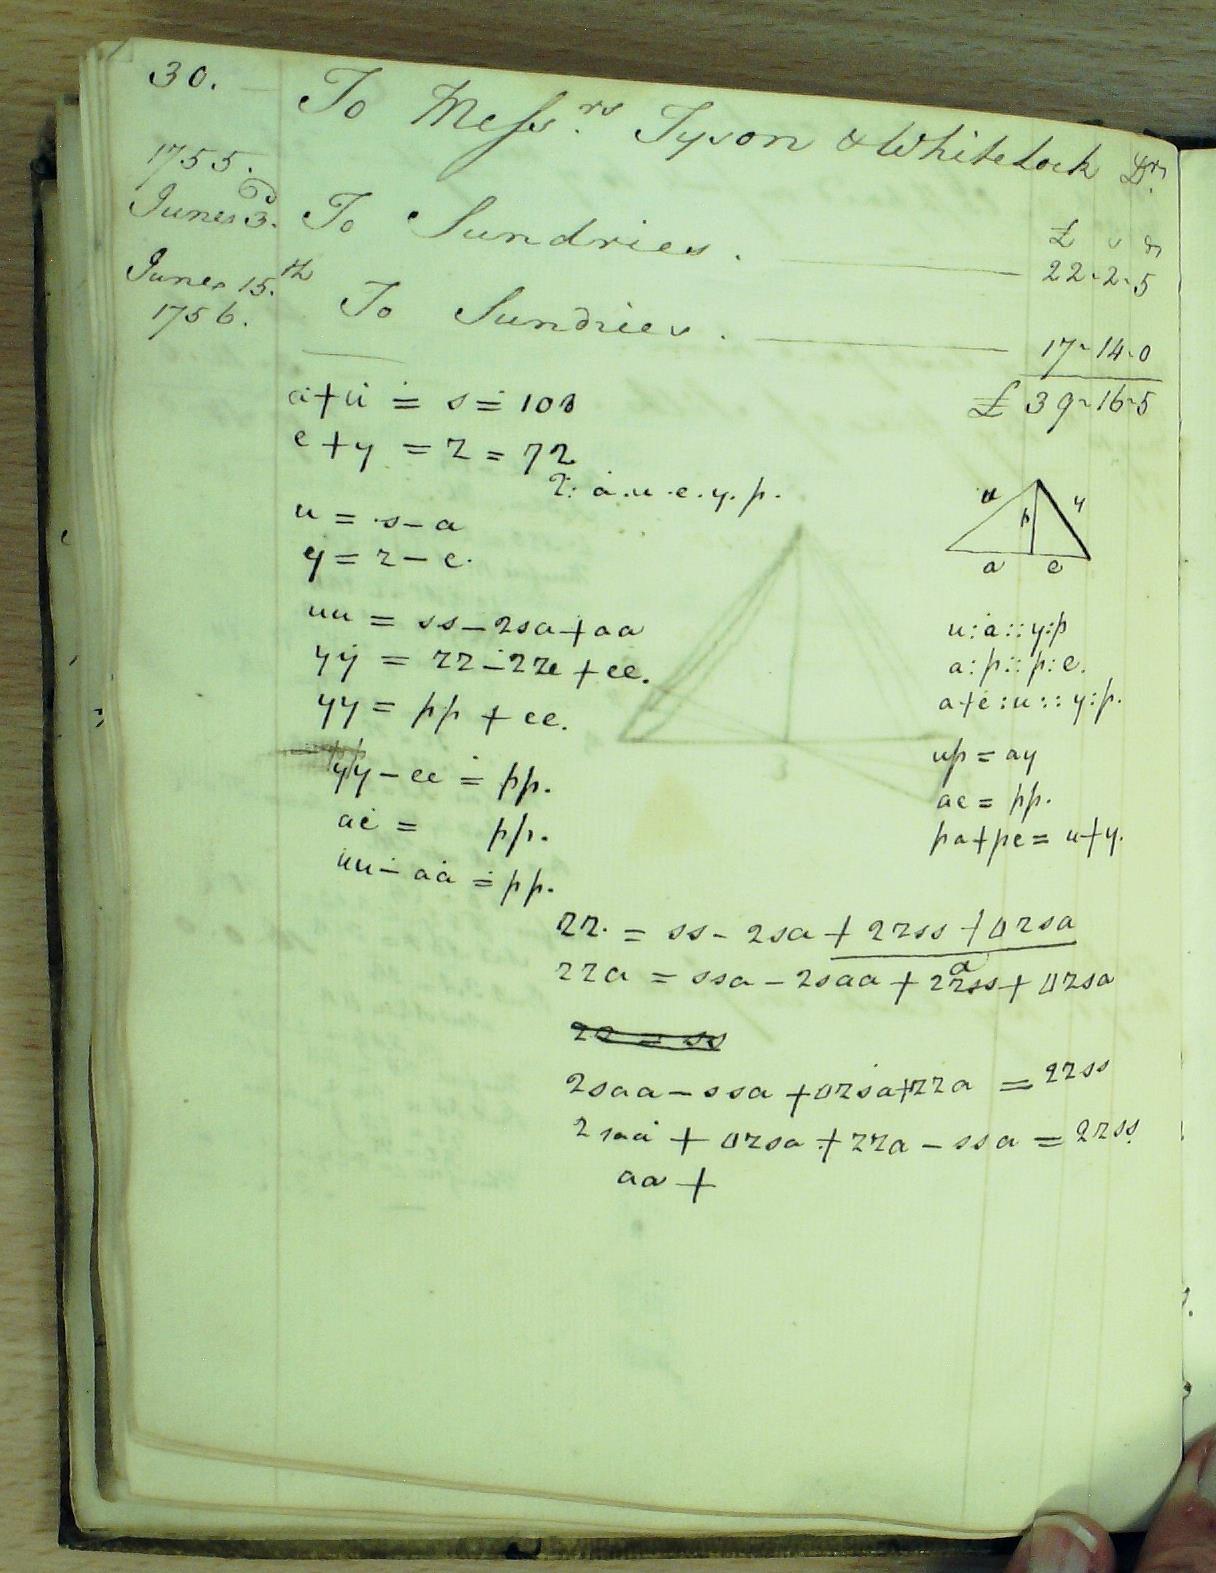 30.
To Messrs. Tyson & Whitelock Drs.
1755.
June 3d. To Sundries.
£ s d
22-2-5
June 15th
1756. To Sundries.
17-14-0
£ 39-16-5
a+u = s = 108
e+y = z = 72
2: a.u.e.y.p.
u = s-a
y = z-e.
uu = ss-2sa+aa
yy = zz-2ze+ee.
yy = pp+ee.
yy-ee = pp.
ae = pp.
uu-aa = pp.
u
y
p
a e
u:a::y:p
a:p::p:e.
a+e:u::y:p.
up = ay
ae = pp.
pa+pe = u+y.
zz. = ss-2sa+2zss+0zsa
a
zza = ssa-2saa+2zss+0zsa
zz = ss
2saa-ssa+0zsa+zza = 2zss
2saa+0zsa+zza-ssa = 2zss.
aa+